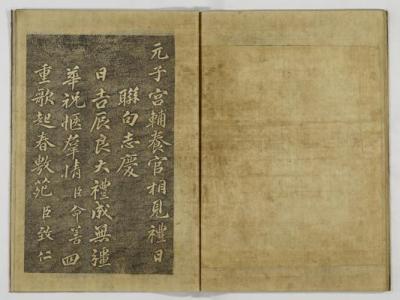 元子宮輔養官相見禮日
聯句志慶
日吉辰良大禮成無疆
華祝愜羣情臣命善四
重歌起春敷苑臣致仁